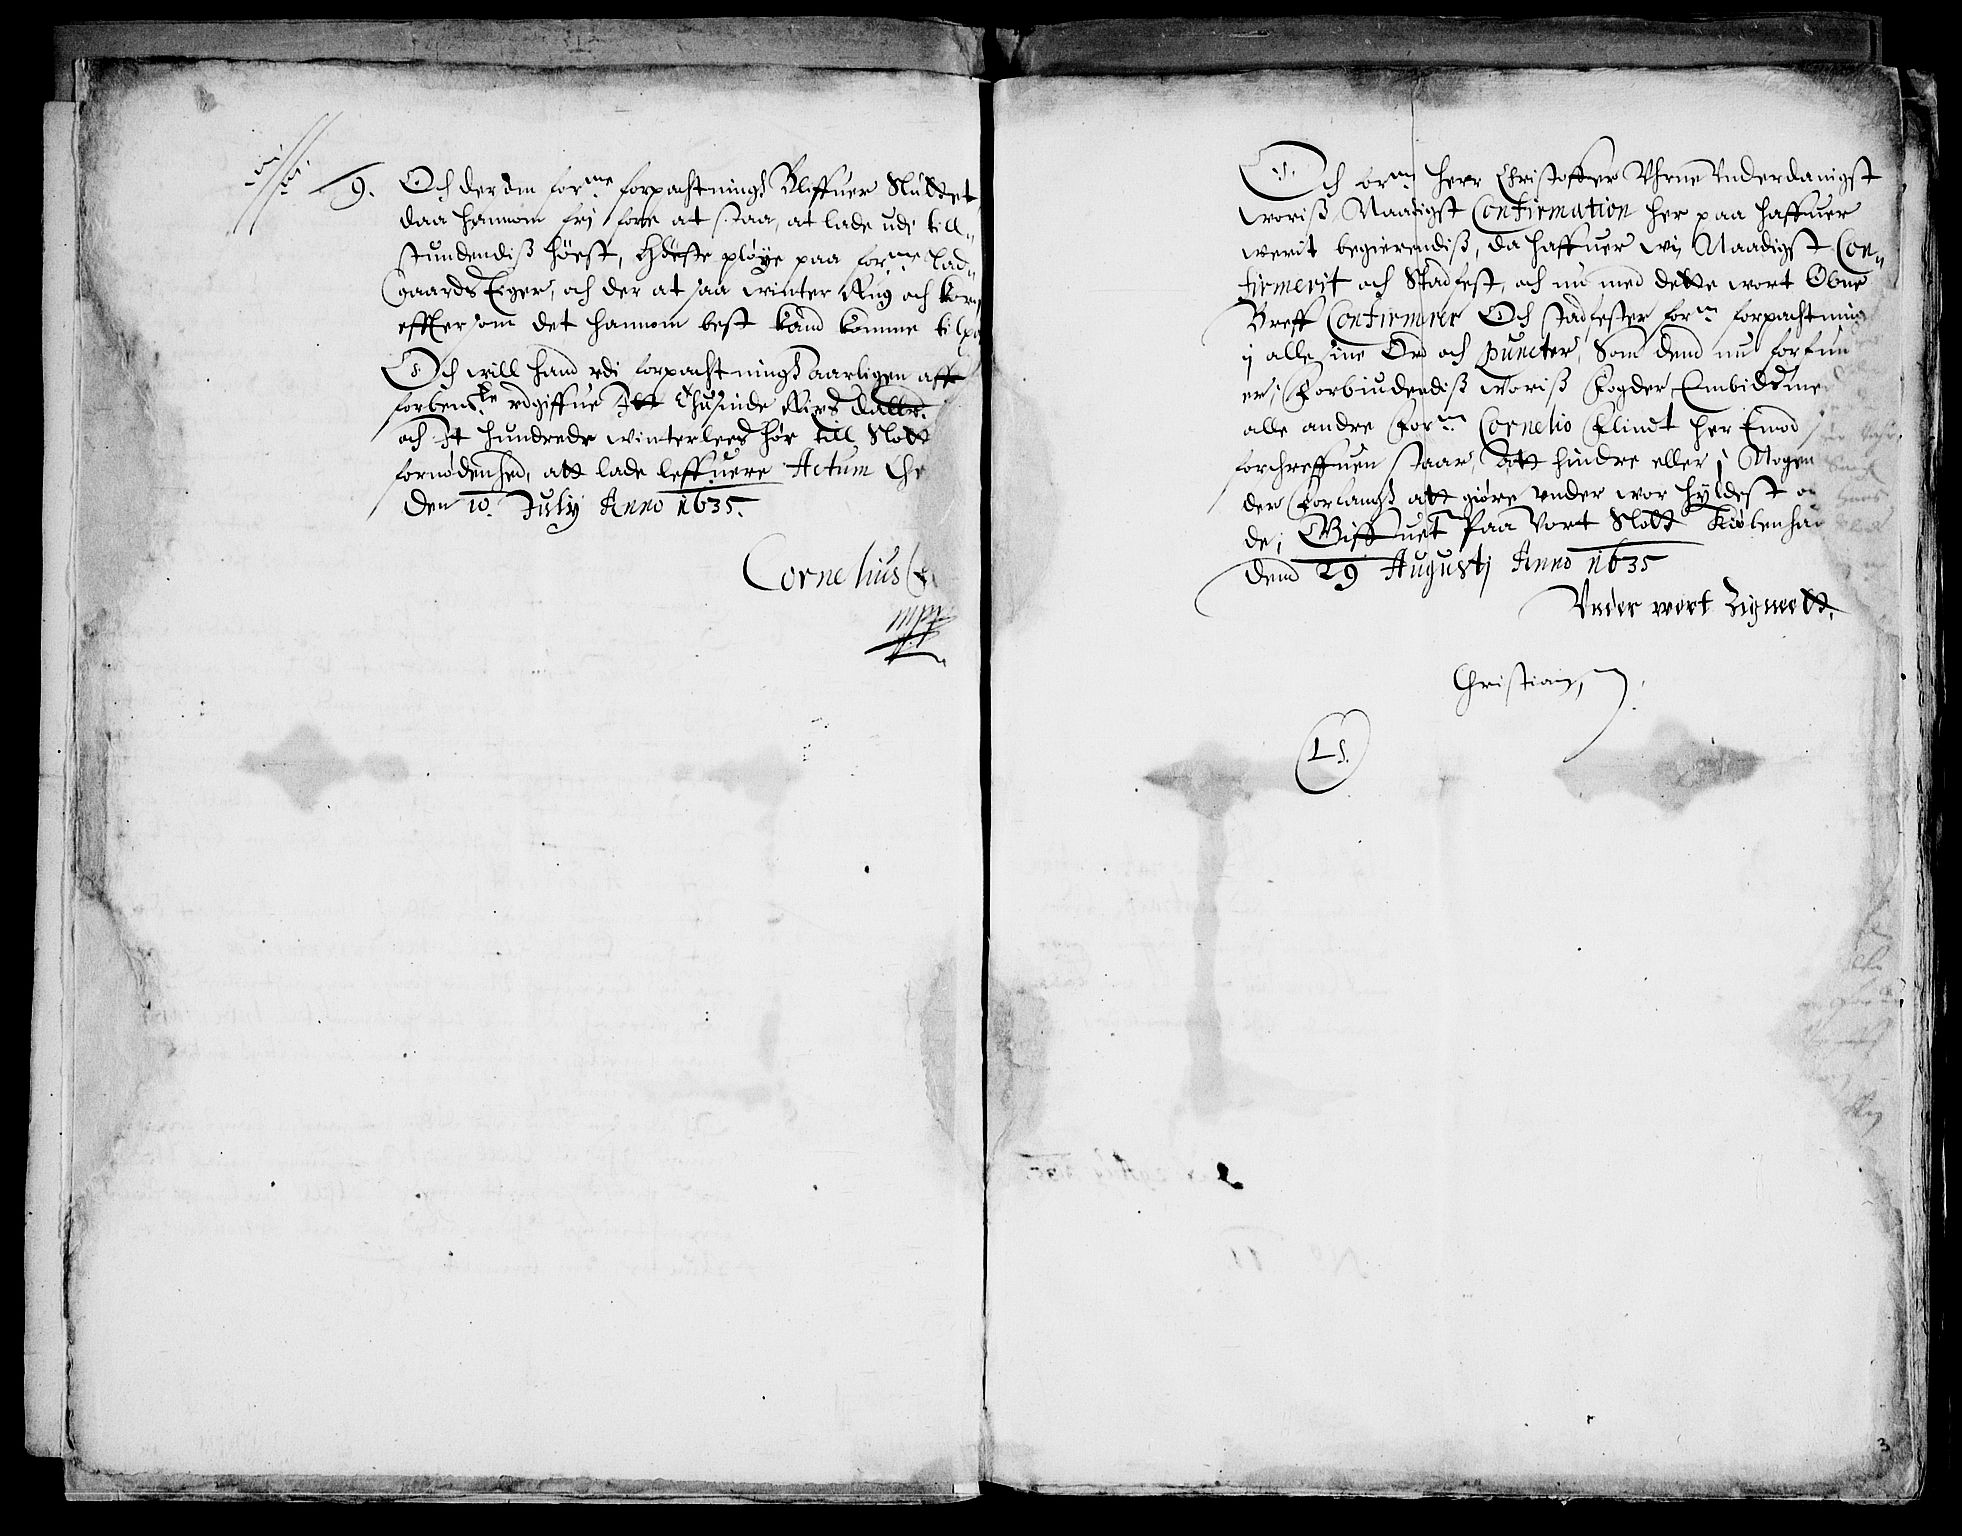 9. Och der som for:me forpachtning Bliffuer Sluttet
daa hannom frj fore at staa, at lade udi till„
stundendiß høest, Høste pløye paa for:me lad„
gaards Eiger, och der at saa winter Rug och korn
effter som det hannom best kand komme till
Och will hand udi forpachtning aarligen aff
forben:te udgiffue Itt Thusinde Rix daller.
och It hundrede winterleed hør till Slott
fornødenhed, att lade leffuere Actum
Den 10. July Anno 1635.
Cornelius
mpp
Och for:ne Herr Christoffer Vhrne Vnderdanigst
woriß Naadigst Confirmation her paa haffuer
werit begierendiß, da haffuer wj Naadigst Con„
firmerit och Stadfest, och nu med dette wort Obne
Breff Confirmerer Och stadfester for:ne forpachtning
ÿ alle sine Ord och puncter, Som dend nu forfun
er, Forbiudendiß woriß Fogder Embidsme
alle andre For:ne Cornelio Flindt her Emod
forschreffuen staar, att hindre eller i Nogen
der Forfang att giøre vnder wor Hyldest
de, Giffuet Paa Vort Slott Kiøbenhau
Dend 29 Augustj Anno 1635
Vnder wort Zignett.
Christian
LS.
3